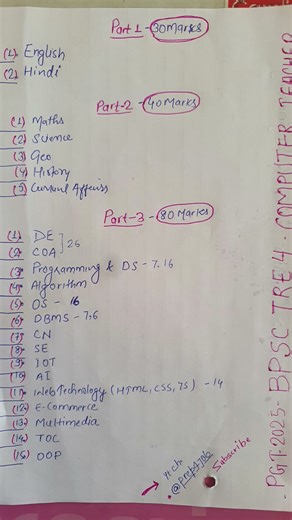 Part 1 - 30 Marks
(1) English
(2) Hindi
Part-2 - 40 Marks
(1) Maths
(2) Science
(3) Geo
(4) History
(5) Current Affairs
Part-3 - 80 Marks
(1) DE
(2) COA ] 26
(3) Programming & DS - 7.16
(4) Algorithm
(5) OS - 16
(6) DBMS - 7.6
(7) CN
(8) SE
(9) IOT
(10) AI
(11) Web Technology (HTML, CSS, JS) - 14
(12) E-Commerce
(13) Multimedia
(14) TOC
(15) OOP
PGT-2025 - BPSC TRE 4 - COMPUTER TEACHER
Subscribe